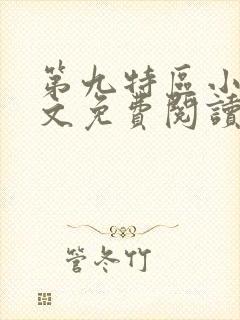 第九特區小
文免費閱讀
管冬竹